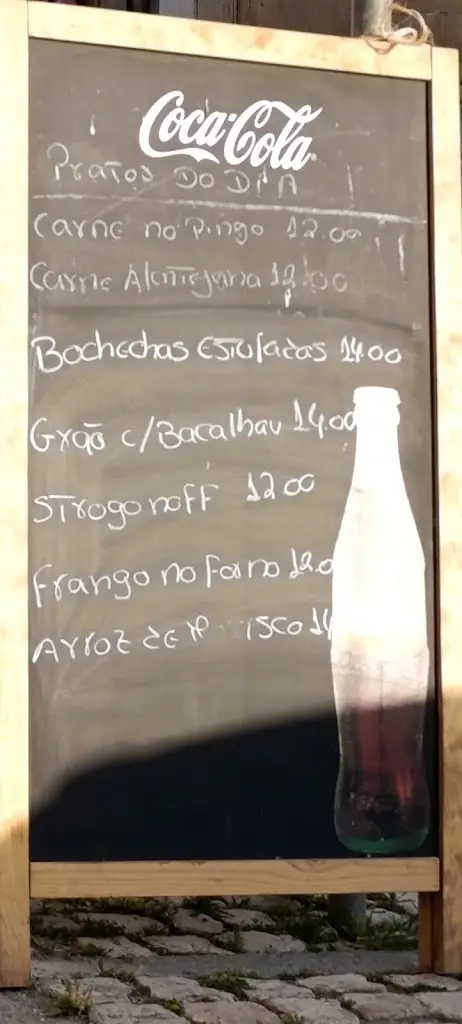 Coca-Cola
Pratos Do DiA
Carne no Pingo 12.00
Carne Alentejana 12.00
Bochechas Estufadas 14.00
Grão c/Bacalhau 14.00
STrogonoFF 12 00
Frango no Forno 12.0
Arroz de 14